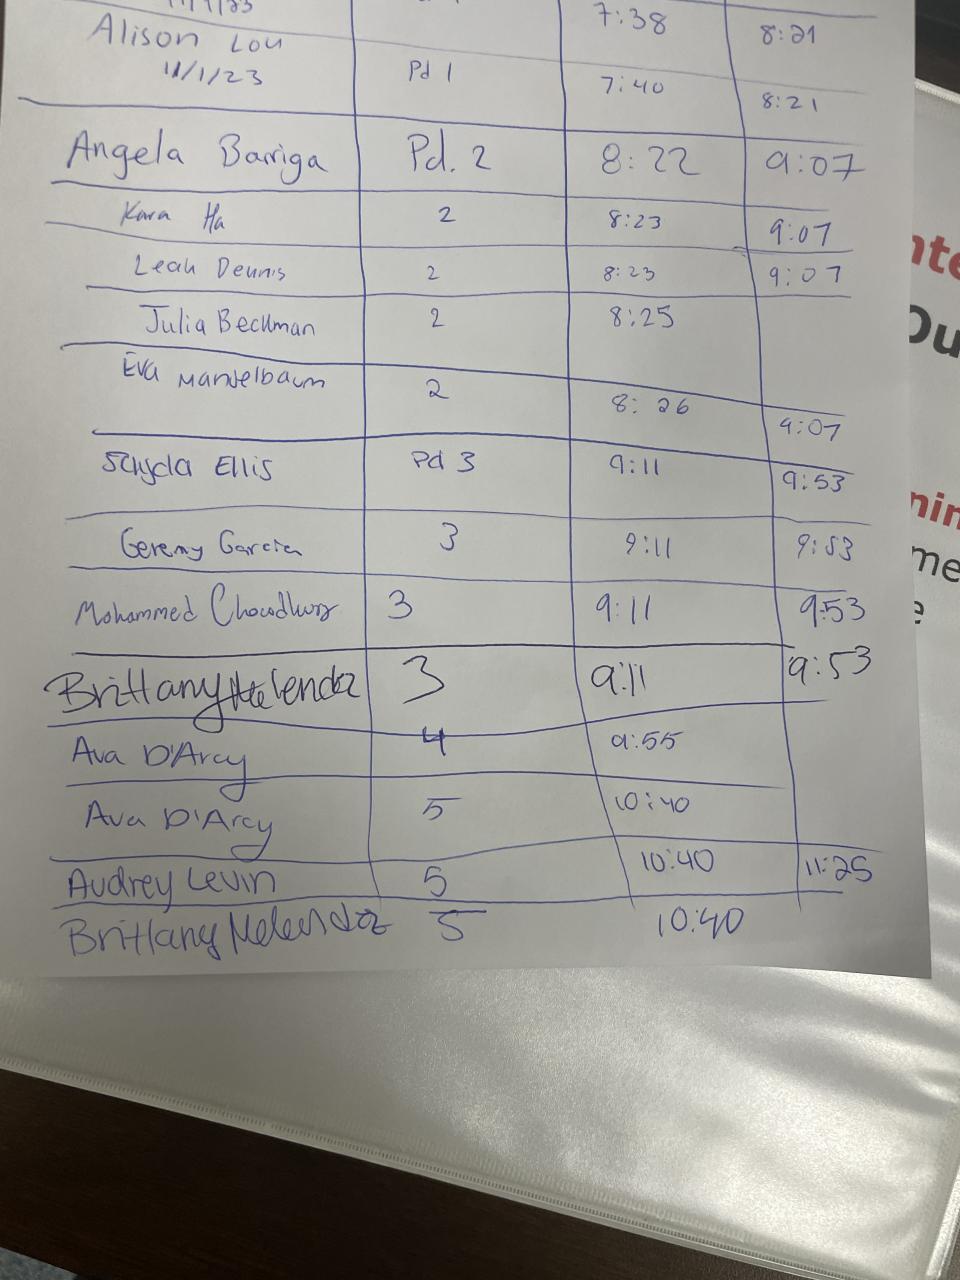 7:38 8:21
Alison Lou
11/1/23 Pd 1 7:40 8:21
Angela Barriga Pd. 2 8:22 9:07
Kara Ha 2 8:23 9:07
Leah Dennis 2 8:23 9:07
Julia Beckman 2 8:25
Eva Mandelbaum 2 8:26 9:07
Ellis Pd 3 9:11 9:53
Geremy Garcia 3 9:11 9:53
Mohammed Chowdhury 3 9:11 9:53
Brittany Melendez 3 9:11 9:53
Ava D'Arcy 4 9:55
Ava D'Arcy 5 10:40
Audrey Levin 5 10:40 11:25
Brittany Melendez 5 10:40